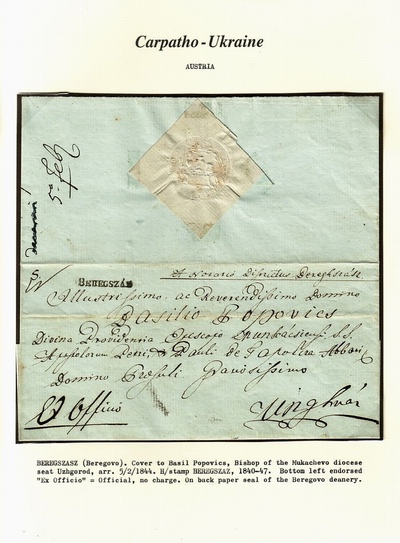 Carpatho-Ukraine
AUSTRIA
5ª Feb
BEREGSZÁZ
A Notario Districtus Bereghszász
Illustrissimo ac Reverendissimo Domino
Basilio Popovics
Divina Providentia Episcopo Munkacsiensi S.S.
Apostolorum Petri, & Pauli de Tapolcza Abbati
Domino Praesuli Gratiosissimo
Ex Officio
Unghvár
BEREGSZASZ (Beregovo). Cover to Basil Popovics, Bishop of the Mukachevo diocese
seat Uzhgorod, arr. 5/2/1844. H/stamp BEREGSZAZ, 1840-47. Bottom left endorsed
"Ex Officio" = Official, no charge. On back paper seal of the Beregovo deanery.